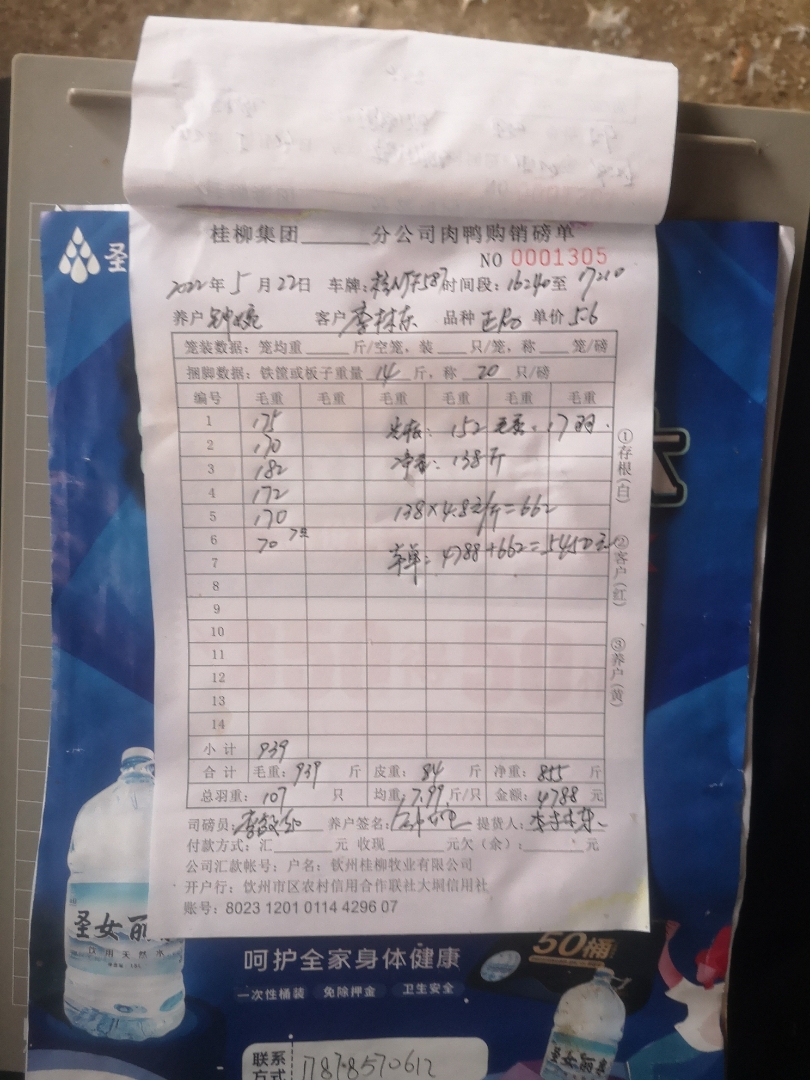 圣
桂柳集团______分公司肉鸭购销磅单
NO 0001305
2022年5月22日 车牌: 时间段:16:40至17:10
养户 客户 李林东 品种 正 单价 5.6
笼装数据:笼均重____斤/空笼,装___只/笼,称___笼/磅
捆脚数据:铁筐或板子重量 14 斤,称 20 只/磅
编号 毛重 毛重 毛重 毛重 毛重 毛重
1 175 152毛重, 17羽.
2 170
3 182 净重:138斤
4 172
5 170 138×4.8元/斤=662
6 70 7只
7 车单:4788+662=5450元
8
9
10
11
12
13
14
小计 939
合计 毛重:939 斤 皮重:84 斤 净重:855 斤
总羽重:107 只 均重:7.99 斤/只 金额:4788 元
司磅员: 养户签名: 提货人:李林东
付款方式:汇______元 收现______元欠(余):______元
公司汇款帐号:户名:钦州桂柳牧业有限公司
开户行:钦州市区农村信用合作联社大垌信用社
账号:8023 1201 0114 4296 07
①存根(白)
②客户(红)
③养户(黄)
圣女丽
饮用天然水
呵护全家身体健康
50桶
一次性桶装 免除押金 卫生安全
圣女丽
联系方式 17878570612